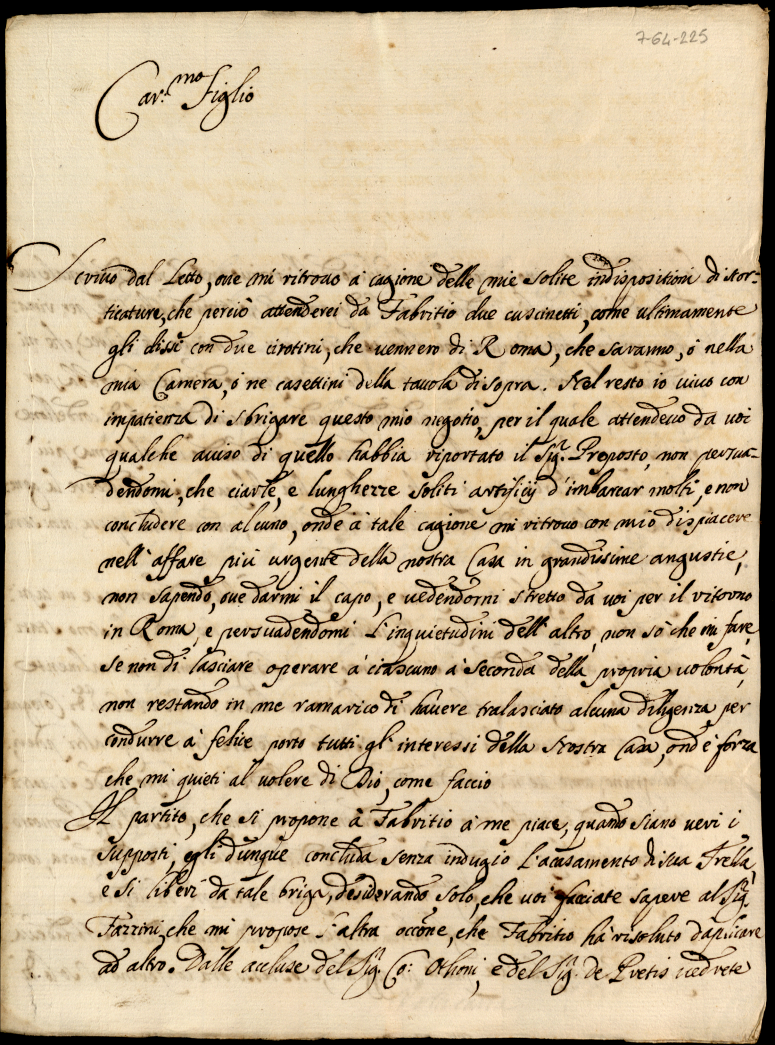 7-64-225
Car.mo Figlio
Scrivo dal Letto, oue mi ritrouo à cagione delle mie solite indispositioni di stor-
ticature, che perciò attenderei da Fabritio due cuscinetti, come ultimamente
gli dissi con due cirotini, che uennero di Roma, che saranno, ò nella
mia Camera, ò ne casettini della tauola di sopra. Nel resto io uiuo con
impatienza di sbrigare questo mio negotio, per il quale attendeuo da uoi
qualche auiso di quello habbia riportato il Sig.r Proposto, non persua-
dendomi, che ciarle, e lunghezze soliti artificij d'imbarcar molti, e non
concludere con alcuno, onde à tale cagione mi ritrouo con mio dispiacere
nell'affare più urgente della nostra Casa in grandissime angustie,
non sapendo, oue darmi il capo, e uedendomi stretto da uoi per il ritorno
in Roma, e persuadendomi l'inquietudini dell'altro, non sò che mi fare,
se non di lasciare operare à ciascuno à seconda della propria uolontà,
non restando in me ramarico di hauere tralasciato alcuna diligenza per
condurre à felice porto tutti gl'interessi della Nostra Casa, ond'è forza
che mi quieti al uolere di Dio, come faccio
Il partito, che si propone à Fabritio à me piace, quando siano ueri i
supposti, egli dunque concluda senza indugio l'acasamento di sua Frella,
e si liberi da tale briga, desiderando solo, che uoi facciate sapere al Sig.r
Fazzini, che mi propose l'altra occõne, che Fabritio hà risoluto d'aplicare
ad altro. Dalle accluse del Sig.r Co: Othoni, e del Sig.r de Pretis uedrete